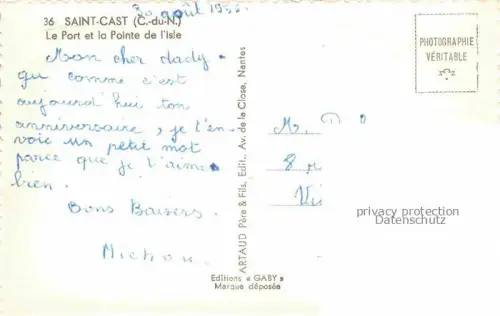 30 août 1955.
36 SAINT-CAST (C.-du-N.)
Le Port et la Pointe de l'Isle
Mon cher dady
qu comme c'est
aujourd'hui ton
anniversaire, je t'en-
voie un petit mot
parce que je t'aime
bien.
Bons Baisers.
Michou
ARTAUD Père & Fils, Edit., Av. de la Close, Nantes
Editions « GABY »
Marque déposée
PHOTOGRAPHIE
VÉRITABLE
Mr.
8 r
Vi
privacy protection
Datenschutz